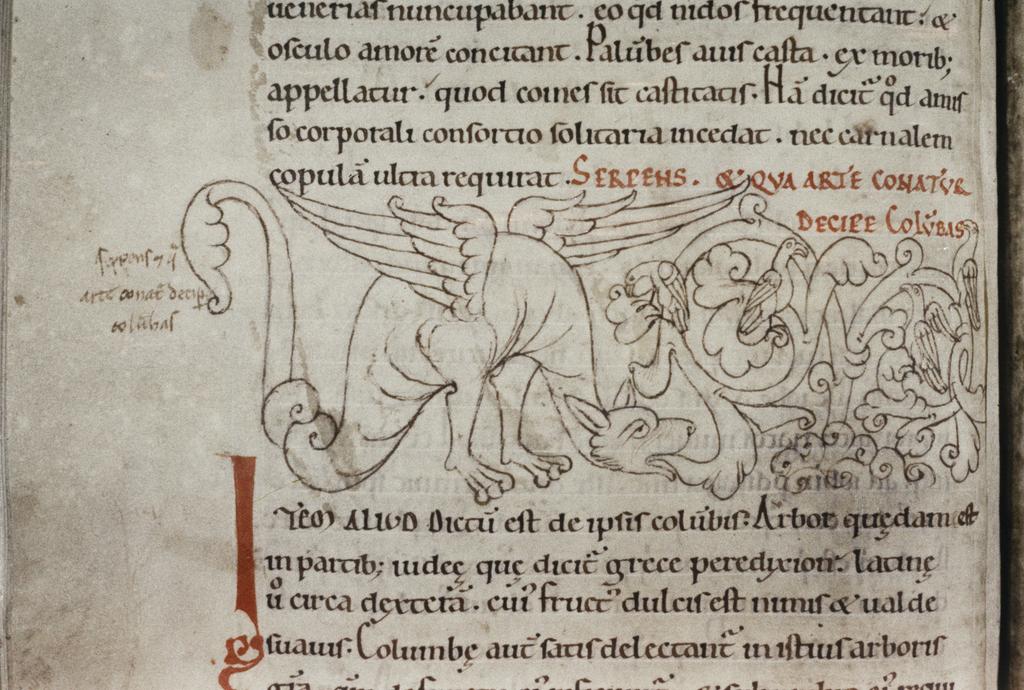 uenerias nuncupabant . eo qd nidos frequentant . &
osculo amorē concitant . Palūbes auis casta . ex morib;
appellatur . quod comes sit castitatis . Hā dicit̄ qd amis
so corporali consortio solitaria incedat . nec carnalem
copulā ultra requirat . SERPENS . & QVA ARTE CONATVR
DECIPE COLŪBAS
serpens & q̄
arte conat̄ decip̄
colūbas
ITEM ALIUD Dictū est de ipsis colūbis . Arbor quędam est
in partib; iudeę quę dicit̄ grece peredixion . latinę
ů circa dexterā . cui᾽ fruct᾽ dulcis est nimis & ualde
suauis . Columbę aut̄ satis delectant̄ in istius arboris